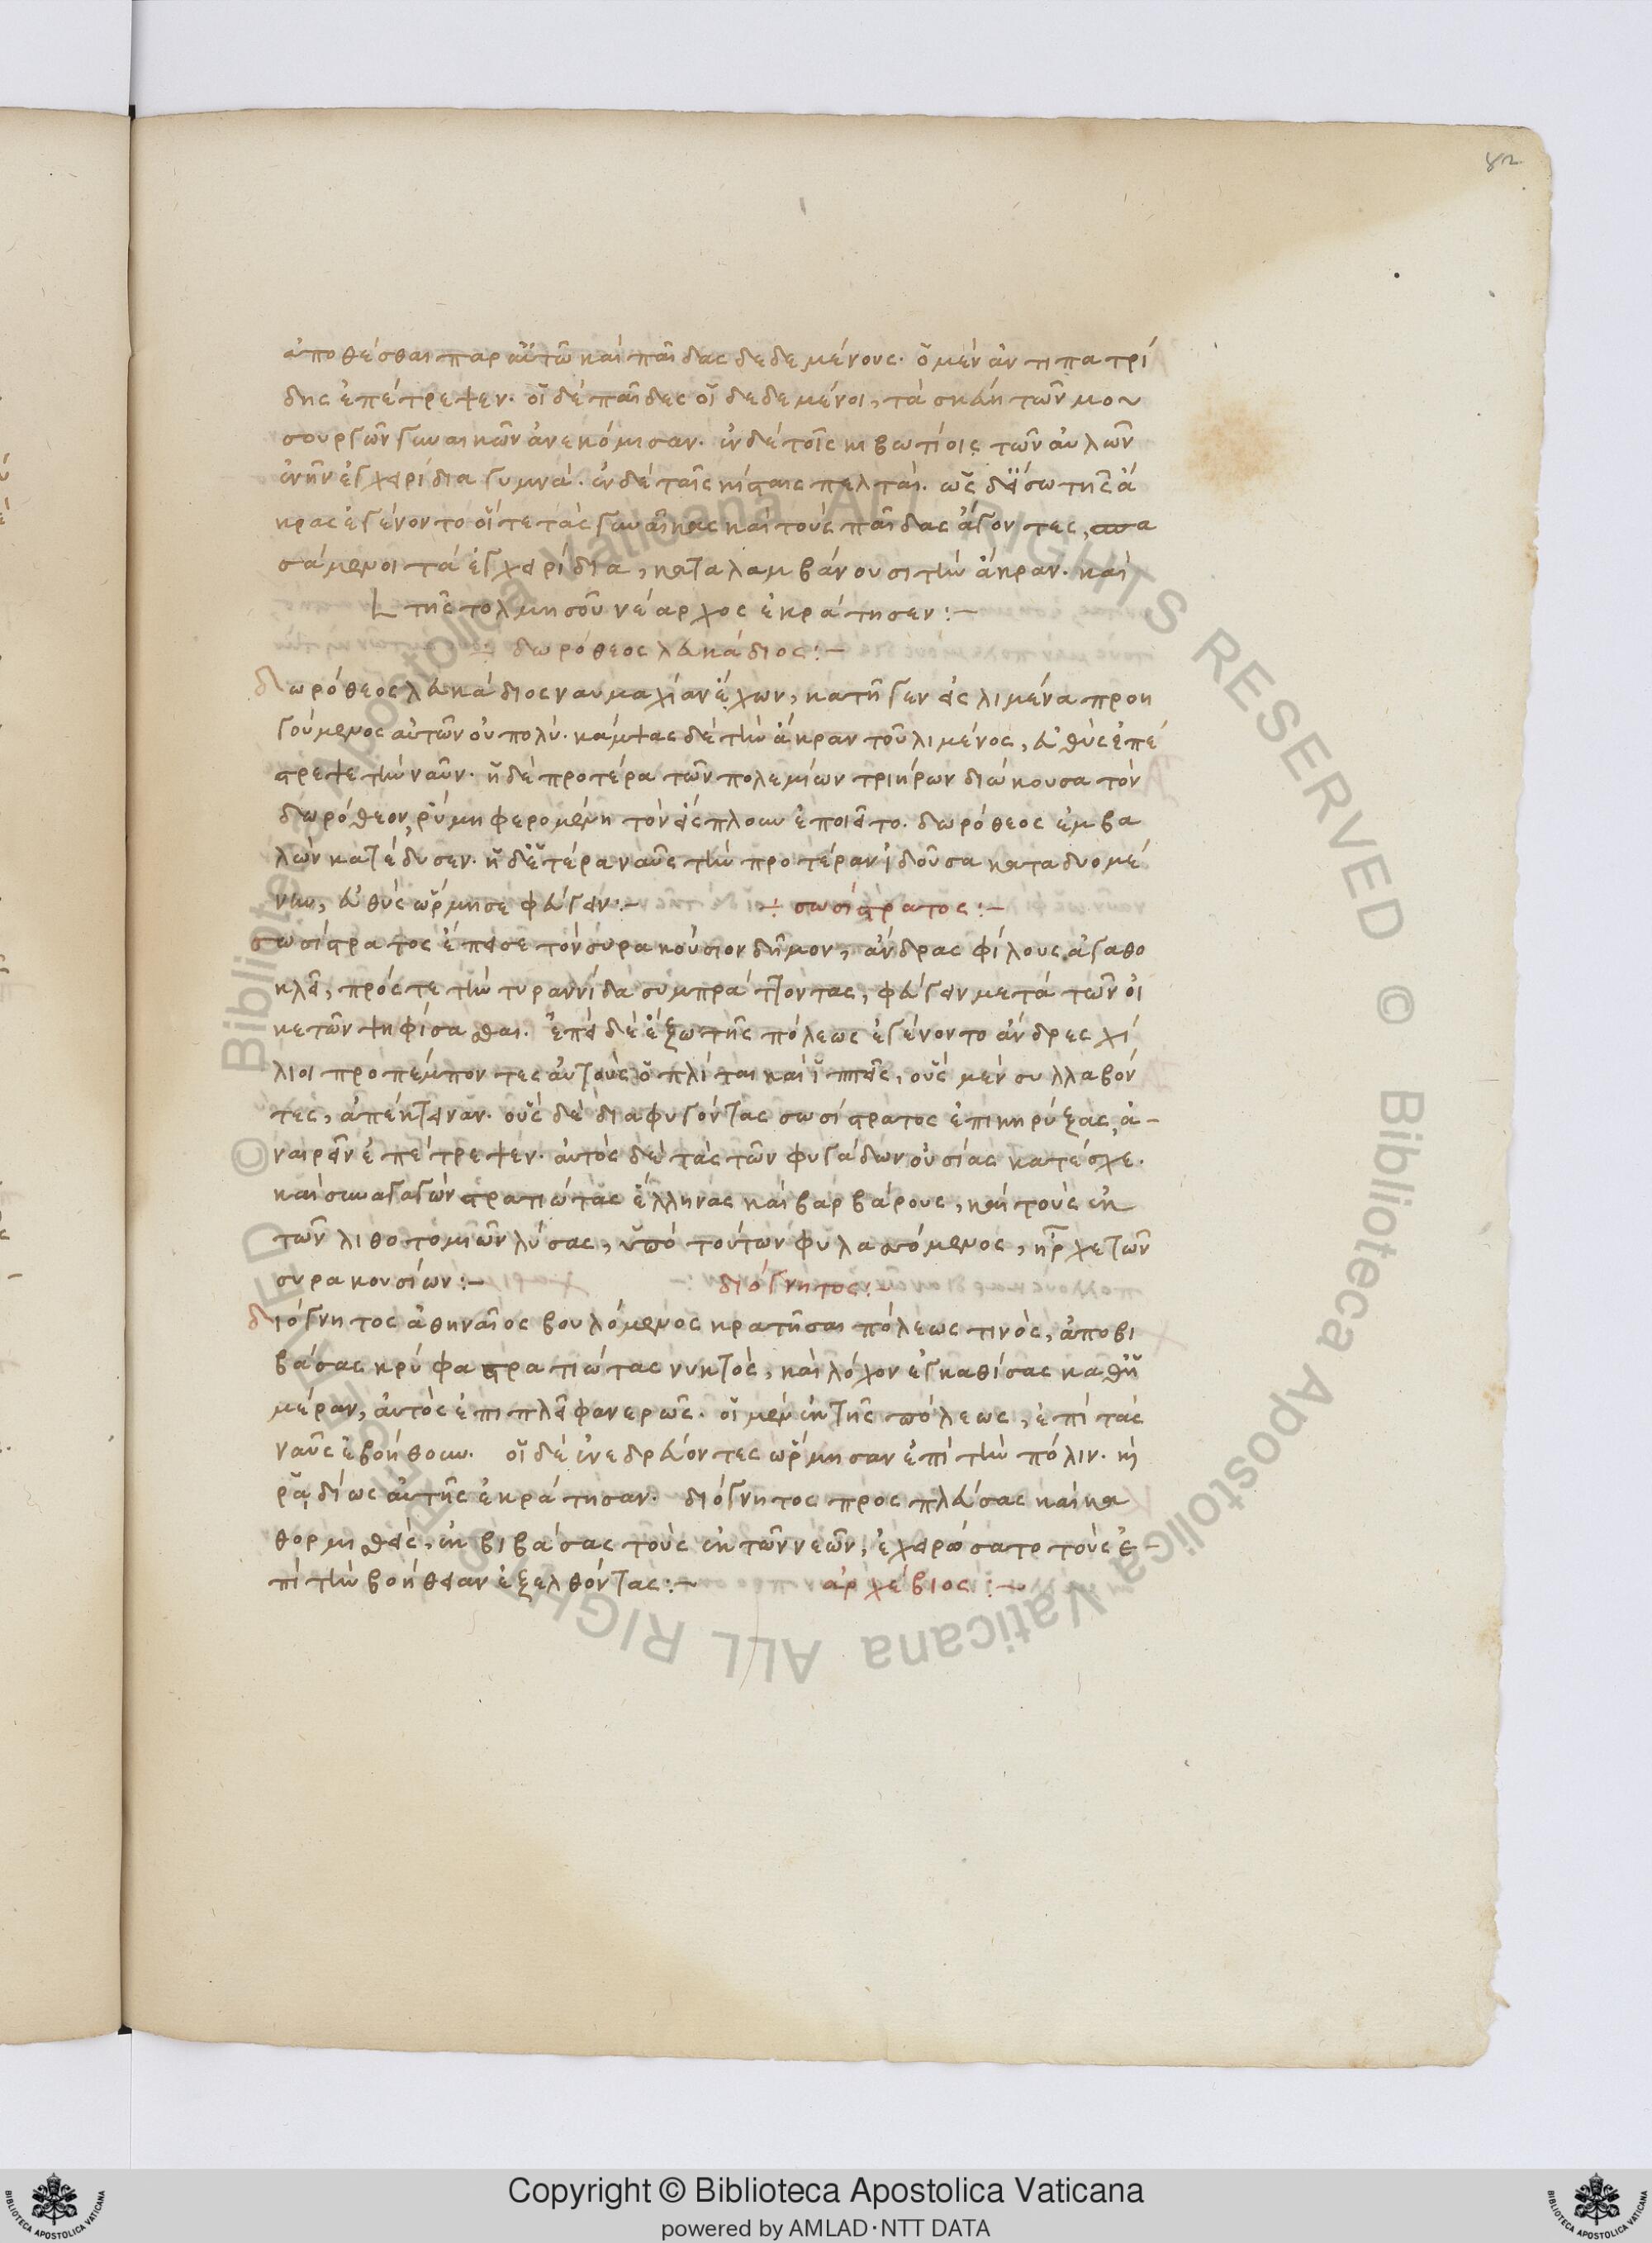 82
ἀποθέσθαι παρ αὐτῶ καὶ παῖδας δεδεμένους. ὁ μὲν ἀντιπατρί
δης ἐπέτρεψεν. οἱ δὲ παῖδες οἱ δεδεμένοι, τὰ σκεύη τῶν μου
σουργῶν γυναικῶν ἀνεκόμισαν. ἐν δὲ τοῖς κιβωτίοις τῶν αὐλῶν
ἐνῆν ἐγχειρίδια γυμνά. ἐν δὲ ταῖς κίσταις πελται. ὡς δ εἴσω τῆς ἄ
κρας ἐγένοντο οἵ τε τὰς γυναῖκας καὶ τοὺς παῖδας ἄγοντες, σπα
σάμενοι τὰ ἐγχειρίδια, καταλαμβάνουσι τὴν ἄκραν. καὶ
της τολμησοῦ νέαρχος ἐκράτησεν:-
÷ δωρόθεος λευκάδιος:-
δωρόθεος λευκάδιος ναυμαχίαν ἔχων, κατῆγεν εἰς λιμένα προη
γούμενος αὐτῶν οὐ πολύ. κάμψας δὲ τὴν ἄκραν τοῦ λιμένος, εὐθὺς ἐπέ
στρεψε τὴν ναῦν. ἡ δὲ προτέρα τῶν πολεμίων τριήρων διώκουσα τὸν
δωρόθεον, ῥύμη φερομένη τὸν εἴσπλουν ἐποιεῖτο. δωρόθεος ἐμβα
λὼν κατέδυσεν. ἡ δευτέρα ναῦς τὴν προτέραν ἰδοῦσα καταδυομέ
νην, εὐθὺς ὥρμησε φεύγειν:- ÷ σωσίστρατος:-
σωσίστρατος ἔπεισε τὸν συρακούσιον δῆμον, ἄνδρας φίλους ἀγαθο
κλεῖ, πρός τε τὴν τυραννίδα συμπράττοντας, φεύγειν μετὰ τῶν οἰ
κετῶν ψηφίσασθαι. ἐπεὶ δὲ ἔξω τῆς πόλεως ἐγένοντο ἄνδρες χί
λιοι προπέμποντες αὐτοὺς ὁπλίται καὶ ἱππεῖς, οὓς μὲν συλλαβόν
τες, ἀπέκτειναν. οὓς δὲ διαφυγόντας σωσίστρατος ἐπικηρύξας, ἀ-
ναιρεῖν ἐπέτρεψεν. αὐτὸς δὲ τὰς τῶν φυγάδων οὐσίας κατέσχε.
καὶ συναγαγὼν στρατιώτας ἕλληνας καὶ βαρβάρους, καὶ τοὺς ἐκ
τῶν λιθοτομιῶν λύσας, ὑπὸ τούτων φυλασσόμενος, ἦρχε τῶν
συρακουσίων:- διόγνητος:-
διόγνητος ἀθηναῖος βουλόμενος κρατῆσαι πόλεώς τινος, ἀποβι
βάσας κρύφα στρατιώτας νυκτὸς, καὶ λόχον ἐγκαθίσας καθη
μέραν, αὐτὸς ἐπιπλεῖ φανερῶς. οἱ μὲν ἐκ τῆς πόλεως, ἐπὶ τὰς
ναῦς ἐβοήθουν. οἱ δὲ ἐνεδρεύοντες ὥρμησαν ἐπὶ τὴν πόλιν. καὶ
ῥᾳδίως αὐτῆς ἐκράτησαν. διόγνητος προσπλεύσας καὶ κα
θορμισθεὶς, ἐκβιβάσας τοὺς ἐκ τῶν νεῶν, ἐχειρώσατο τοὺς ἐ-
πὶ τὴν βοήθειαν ἐξελθόντας:- ἀρχέβιος:-
© Biblioteca Apostolica Vaticana ALL RIGHTS RESERVED
Copyright © Biblioteca Apostolica Vaticana
powered by AMLAD·NTT DATA
BIBLIOTECA APOSTOLICA VATICANA
BIBLIOTECA APOSTOLICA VATICANA